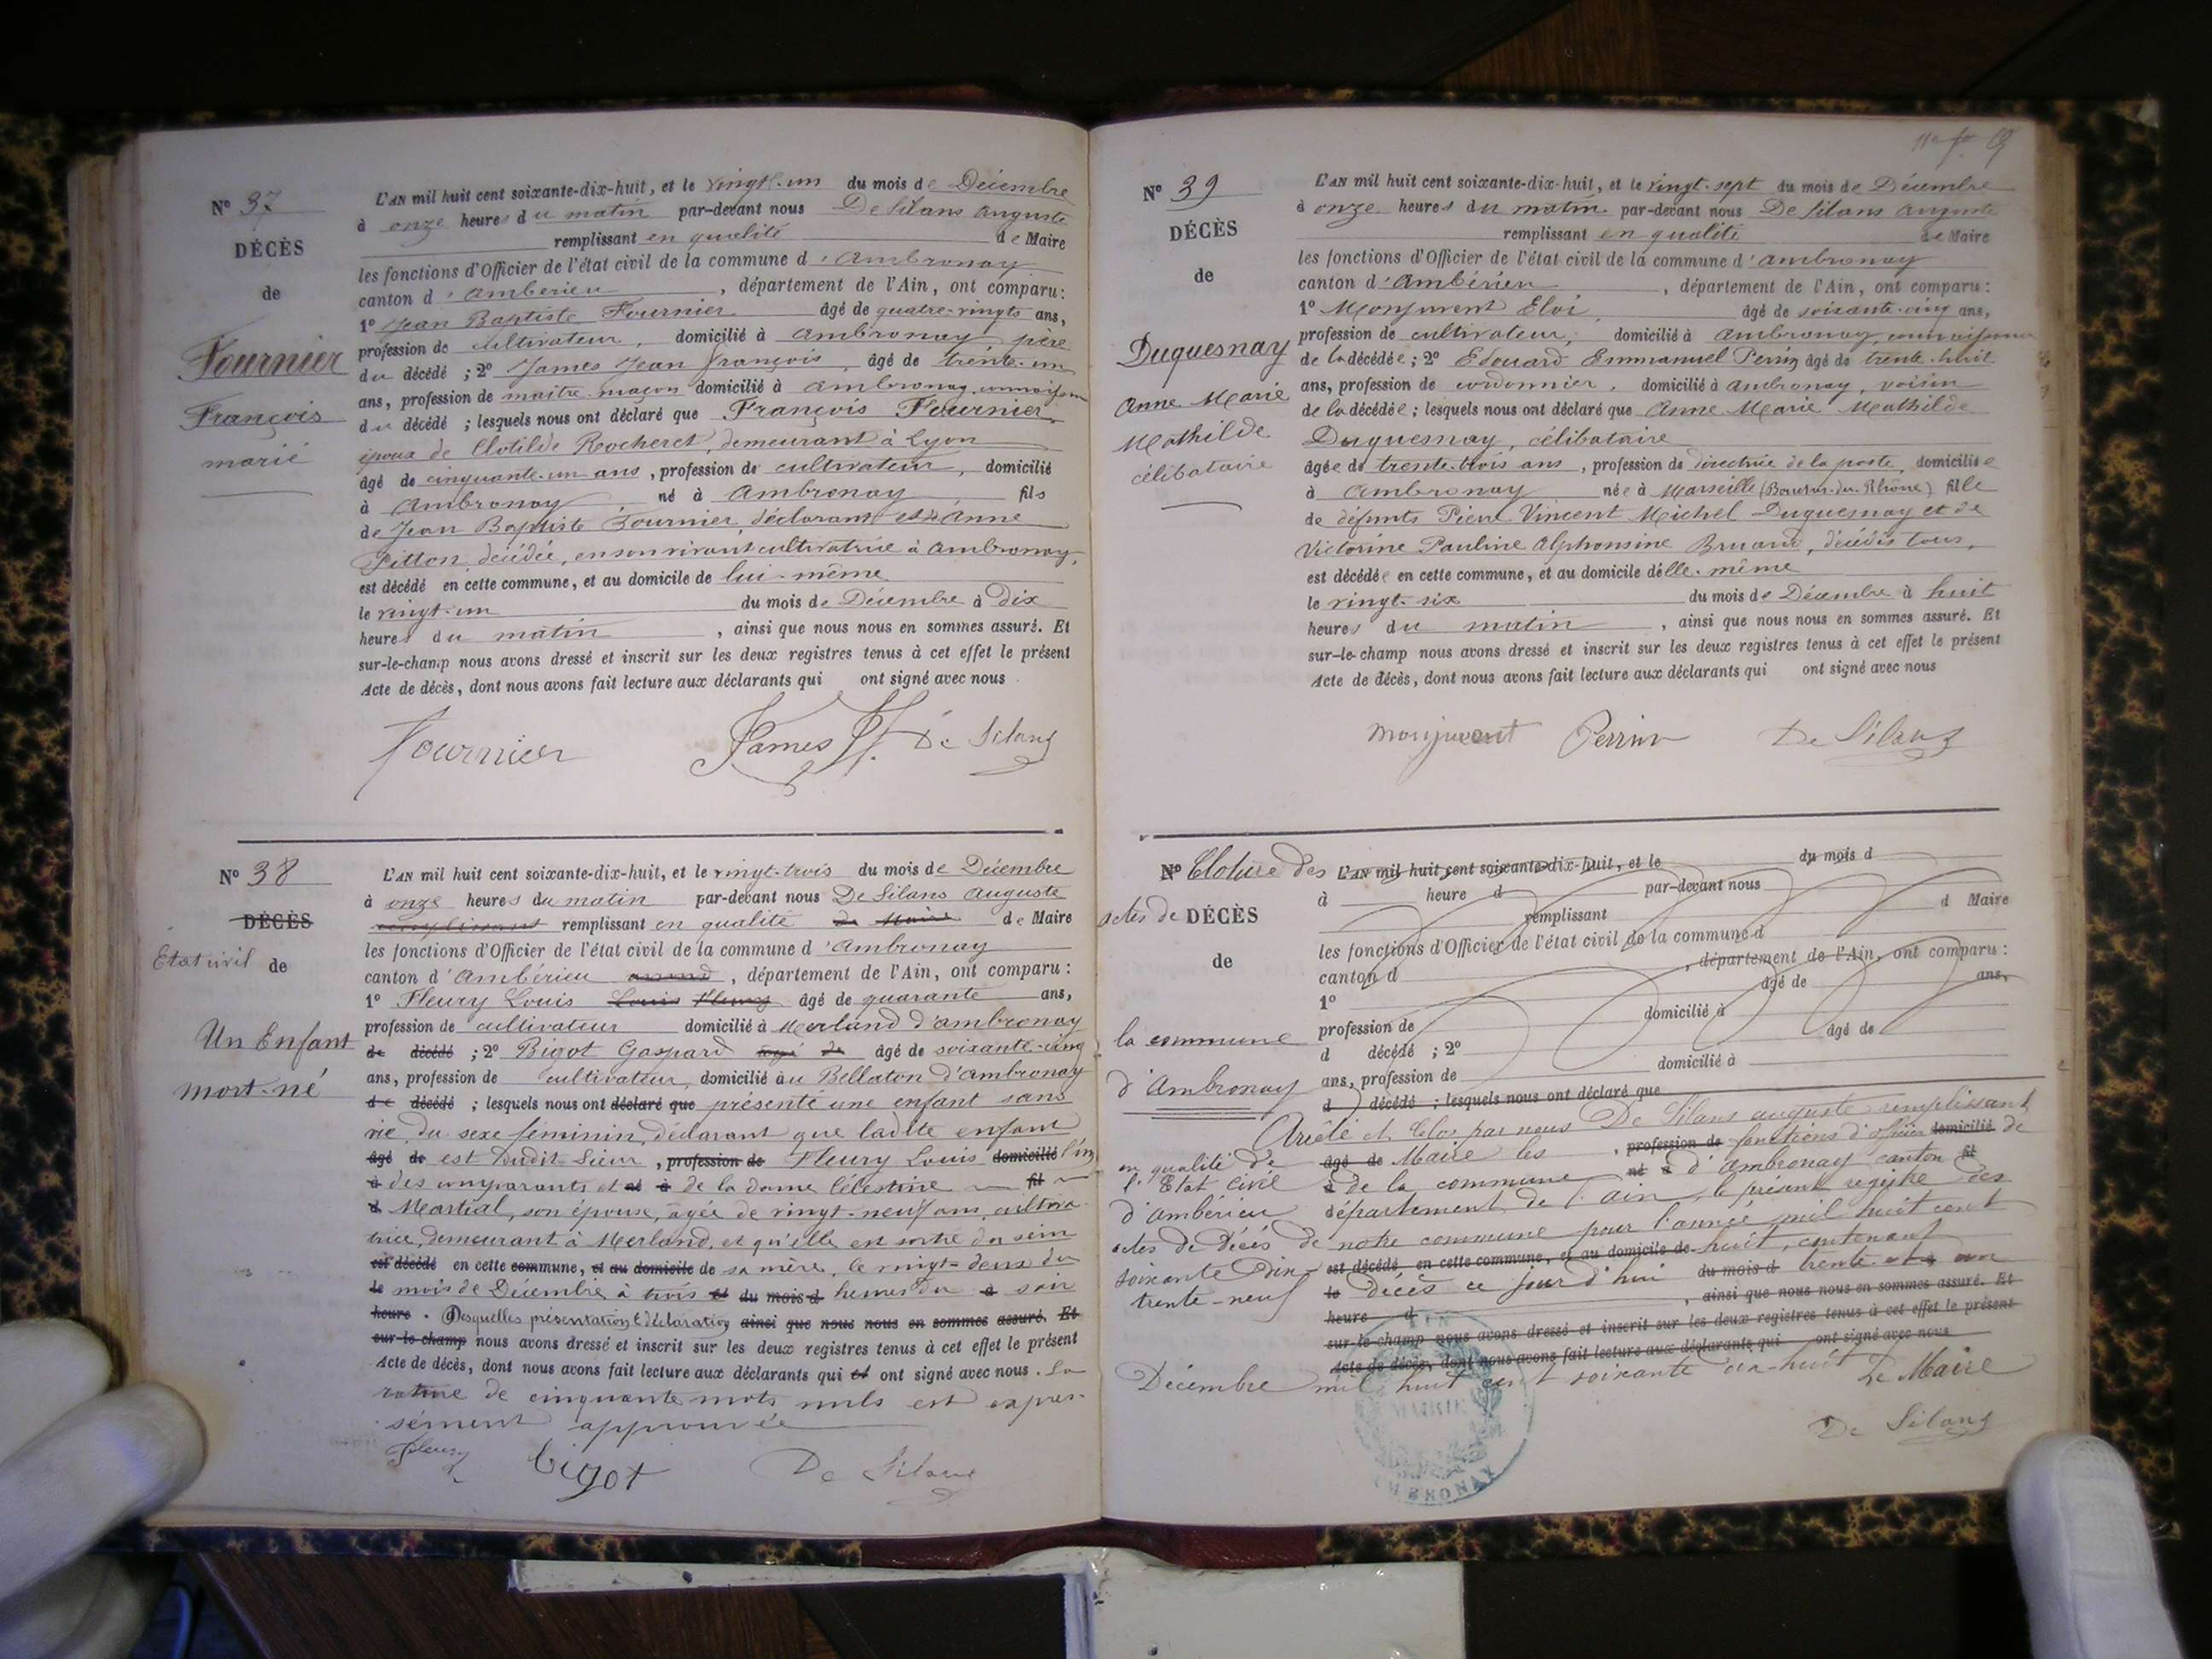 Nº 37
DÉCÈS
de
Fournier
François
marié
L'AN mil huit cent soixante-dix-huit, et le vingt-un du mois de Décembre
à onze heures du matin par-devant nous De Silans Auguste
remplissant en qualité de Maire
les fonctions d'Officier de l'état civil de la commune d'Ambronay
canton d'Amberieu, département de l'Ain, ont comparu:
1º Jean Baptiste Fournier âgé de quatre-vingts ans,
profession de cultivateur, domicilié à Ambronay père
du décédé ; 2º James Jean François, âgé de trente-un
ans, profession de maitre maçon domicilié à Ambronay
du décédé ; lesquels nous ont déclaré que François Fournier,
époux de Clotilde Rocheret, demeurant à Lyon
âgé de cinquante-un ans, profession de cultivateur, domicilié
à Ambronay, né à Ambronay, fils
de Jean Baptiste Fournier déclarant et d'Anne
Pitton décédée, en son vivant cultivatrice à Ambronay,
est décédé en cette commune, et au domicile de lui-même
le vingt-un du mois de Décembre à dix
heures du matin, ainsi que nous nous en sommes assuré. Et
sur-le-champ nous avons dressé et inscrit sur les deux registres tenus à cet effet le présent
Acte de décès, dont nous avons fait lecture aux déclarants qui ont signé avec nous
Fournier James De Silans
Nº 38
DÉCÈS
Etat civil de
Un Enfant
mort-né
L'AN mil huit cent soixante-dix-huit, et le vingt-trois du mois de Décembre
à onze heures du matin par-devant nous De Silans Auguste
remplissant remplissant en qualité de Maire de Maire
les fonctions d'Officier de l'état civil de la commune d'Ambronay
canton d'Ambérieu, département de l'Ain, ont comparu:
1º Fleury Louis Louis Fleury âgé de quarante ans,
profession de cultivateur domicilié à Merland d'Ambronay
de décédé ; 2º Bigot Gaspard âgé de âgé de soixante-cinq
ans, profession de cultivateur, domicilié au Bellaton d'Ambronay
de décédé ; lesquels nous ont déclaré que présenté une enfant sans
vie, du sexe féminin, déclarant que ladite enfant
âgé de est dudit Sieur, profession de Fleury Louis domicilié l'un
à des comparants et né à de la dame Célestine fil
d Martial, son épouse, âgée de vingt-neuf ans, cultiva
trice, demeurant à Merland, et qu'elle est sortie du sein
est décédé en cette commune, et au domicile de sa mère, le vingt-deux du
le mois de Décembre à trois et du mois d heures du à soir
heure . Desquelles présentation & déclaration ainsi que nous nous en sommes assuré. Et
sur-le-champ nous avons dressé et inscrit sur les deux registres tenus à cet effet le présent
Acte de décès, dont nous avons fait lecture aux déclarants qui et ont signé avec nous. La
rature de cinquante mots nuls est expres-
sément approuvée
Fleury Bigot De Silans
Nº 39
DÉCÈS
de
Duquesnay
Anne Marie
Mathilde
célibataire
L'AN mil huit cent soixante-dix-huit, et le vingt-sept du mois de Décembre
à onze heures du matin par-devant nous De Silans Auguste
remplissant en qualité de Maire
les fonctions d'Officier de l'état civil de la commune d'Ambronay
canton d'Ambérieu, département de l'Ain, ont comparu:
1º Monjuvent Eloi, âgé de soixante-cinq ans,
profession de cultivateur, domicilié à Ambronay
de la décédée ; 2º Edouard Emmanuel Perrin âgé de trente-huit
ans, profession de cordonnier, domicilié à Ambronay, voisin
de la décédée ; lesquels nous ont déclaré que Anne Marie Mathilde
Duquesnay, célibataire
âgée de trente-trois ans, profession de directrice de la poste, domiciliée
à Ambronay née à Marseille (Bouches-du-Rhône) fille
de défunts Pierre Vincent Michel Duquesnay et de
Victorine Pauline Alphonsine Bruard, décédés tous,
est décédée en cette commune, et au domicile d'elle-même
le vingt-six du mois de Décembre à huit
heures du matin, ainsi que nous nous en sommes assuré. Et
sur-le-champ nous avons dressé et inscrit sur les deux registres tenus à cet effet le présent
Acte de décès, dont nous avons fait lecture aux déclarants qui ont signé avec nous
Monjuvent Perrin De Silans
Nº Cloture des
actes de DÉCÈS
de
la commune
d'Ambronay
L'AN mil huit cent soixante-dix-huit, et le du mois d
à heure d par-devant nous
remplissant d Maire
les fonctions d'Officier de l'état civil de la commune d
canton d , département de l'Ain, ont comparu:
1º âgé de ans,
profession de domicilié à
d décédé ; 2º âgé de
ans, profession de domicilié à
d décédé ; lesquels nous ont déclaré que
Arrêté et Clos par nous De Silans Auguste remplissant
en qualité de âgé de Maire les , profession de fonctions d'officier domicilié de
l'Etat Civil à de la commune né à d'Ambronay canton fil
d'Ambérieu département de l'Ain, le présent registre des
actes de Décès de notre commune pour l'année mil huit cent
soixante dix- est décédé en cette commune, et au domicile de huit, contenant
trente-neuf le Décès ce jourd'hui du mois d trente et à un
heure d , ainsi que nous nous en sommes assuré. Et
sur-le-champ nous avons dressé et inscrit sur les deux registres tenus à cet effet le présent
Acte de décès, dont nous avons fait lecture aux déclarants qui ont signé avec nous
Décembre mil huit cent soixante dix-huit Le Maire
De Silans
AIN
MAIRIE
AMBRONAY